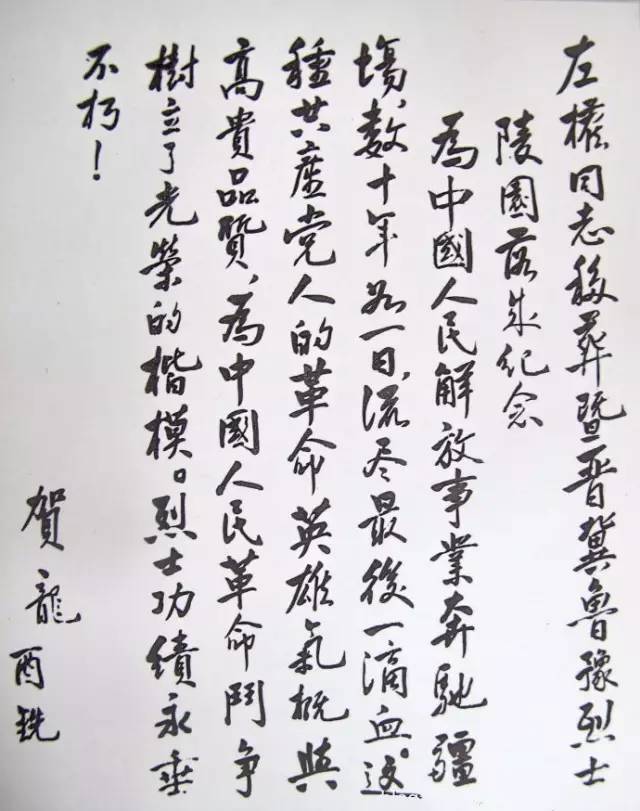 左權同志移葬暨晋冀魯豫烈士
陵園落成纪念
為中國人民解放事業奔馳疆
場，数十年如一日，流尽最後一滴血。这
種共產党人的革命英雄氣概與
高貴品質，為中國人民革命鬥争
樹立了光榮的楷模。烈士功績永垂
不朽！
賀龍 酉銑